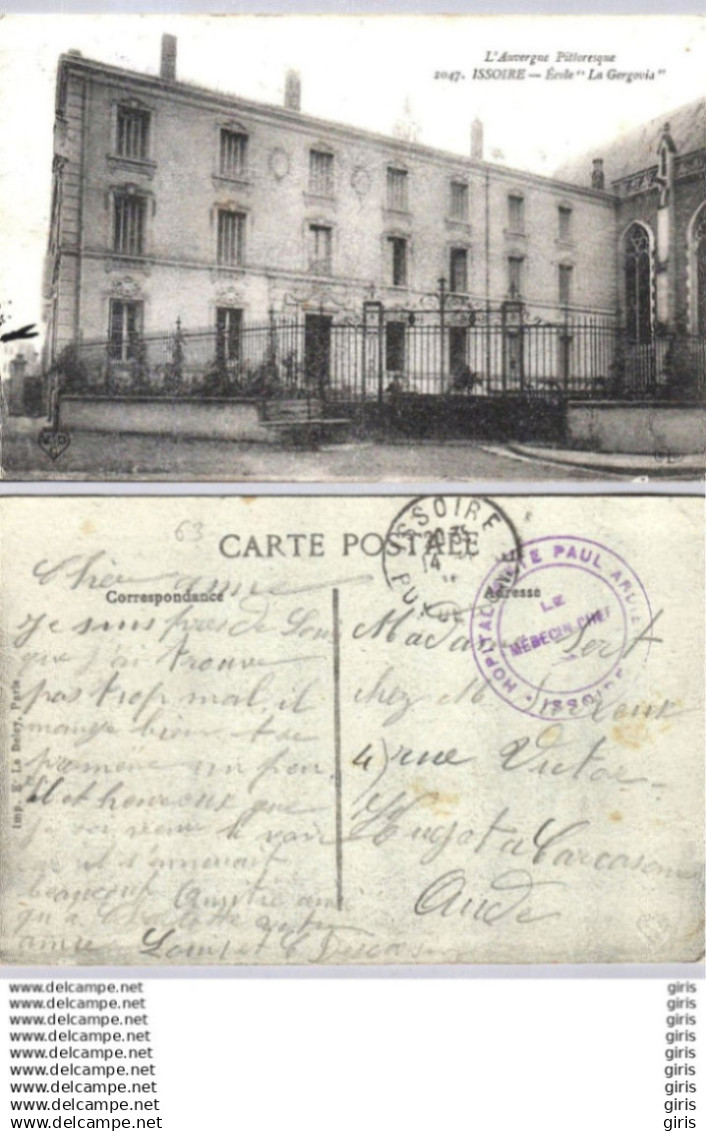 L'Auvergne Pittoresque
2047. ISSOIRE — École "La Gergovia"
63
CARTE POSTALE
Correspondance
Adresse
ISSOIRE
PUY DE
HOPITAL MIXTE PAUL ARDIER
LE
MÉDECIN CHEF
ISSOIRE
Imp. E. Le Deley, Paris
Chère amie
Je suis près de Louis
que j'ai trouvé
pas trop mal, il
mange bien et se
promène un peu.
Il est heureux que
je
le voir
il s'ennuyait
beaucoup
amie Louis et
Madame
chez M.
4) rue Victor
Hugo à Carcassonne
Aude
www.delcampe.net giris
www.delcampe.net giris
www.delcampe.net giris
www.delcampe.net giris
www.delcampe.net giris
www.delcampe.net giris
www.delcampe.net giris
www.delcampe.net giris
www.delcampe.net giris